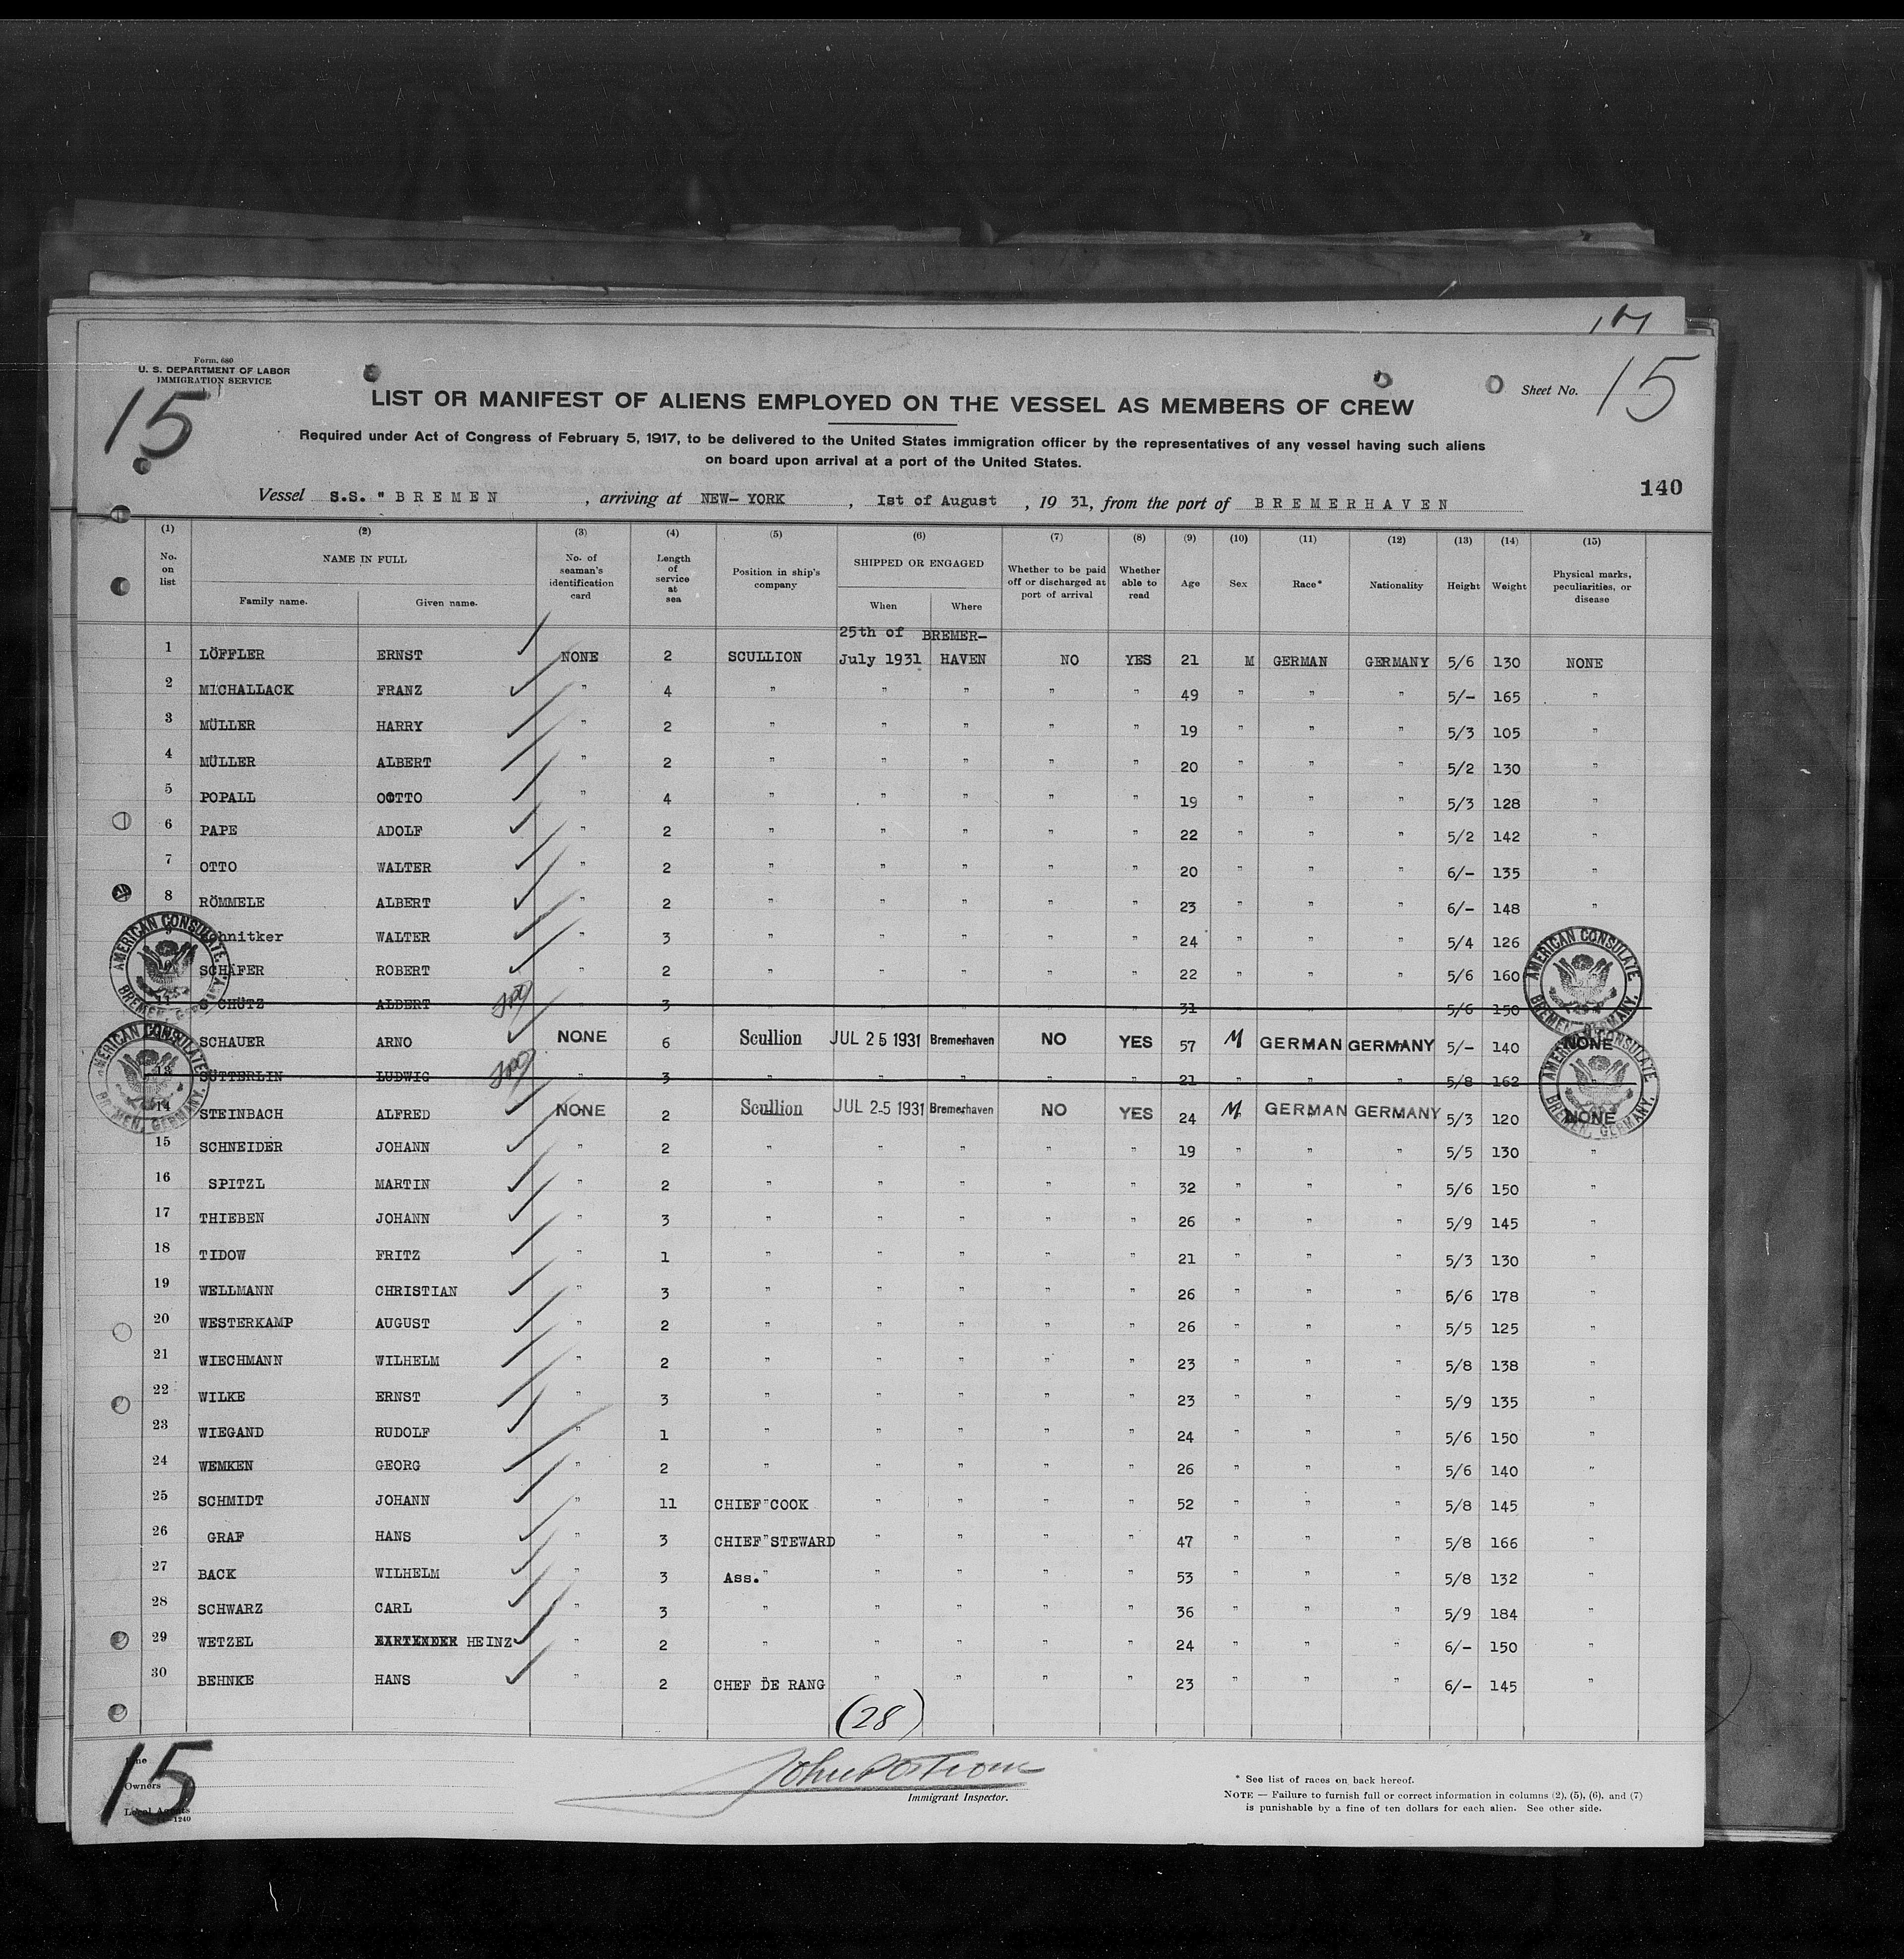 17
Form. 680
U. S. DEPARTMENT OF LABOR
IMMIGRATION SERVICE
15
LIST OR MANIFEST OF ALIENS EMPLOYED ON THE VESSEL AS MEMBERS OF CREW
Sheet No. 15
Required under Act of Congress of February 5, 1917, to be delivered to the United States immigration officer by the representatives of any vessel having such aliens
on board upon arrival at a port of the United States.
140
Vessel S.S. "BREMEN , arriving at NEW-YORK , Ist of August , 19 31, from the port of BREMERHAVEN
(1) (2) (3) (4) (5) (6) (7) (8) (9) (10) (11) (12) (13) (14) (15)
No. on list NAME IN FULL Family name. Given name. No. of seaman's identification card Length of service at sea Position in ship's company SHIPPED OR ENGAGED When Where Whether to be paid off or discharged at port of arrival Whether able to read Age Sex Race* Nationality Height Weight Physical marks, peculiarities, or disease
25th of BREMER-
1 LÖFFLER ERNST NONE 2 SCULLION July 1931 HAVEN NO YES 21 M GERMAN GERMANY 5/6 130 NONE
2 MICHALLACK FRANZ " 4 " " " " " 49 " " " 5/- 165 "
3 MÜLLER HARRY " 2 " " " " " 19 " " " 5/3 105 "
4 MÜLLER ALBERT " 2 " " " " " 20 " " " 5/2 130 "
5 POPALL OTTO " 4 " " " " " 19 " " " 5/3 128 "
6 PAPE ADOLF " 2 " " " " " 22 " " " 5/2 142 "
7 OTTO WALTER " 2 " " " " " 20 " " " 6/- 135 "
8 RÖMMELE ALBERT " 2 " " " " " 23 " " " 6/- 148 "
9 WALTER " 3 " " " " " 24 " " " 5/4 126
SCHÄFER ROBERT " 2 " " " " " 22 " " " 5/6 160
11 SCHÜTZ ALBERT " 3 " " " " " 31 " " " 5/6 150
SCHAUER ARNO NONE 6 Scullion JUL 25 1931 Bremerhaven NO YES 57 M GERMAN GERMANY 5/- 140 NONE
13 SÜTTERLIN LUDWIG " 3 " " " " " 21 " " " 5/8 162
14 STEINBACH ALFRED NONE 2 Scullion JUL 25 1931 Bremerhaven NO YES 24 M GERMAN GERMANY 5/3 120 NONE
15 SCHNEIDER JOHANN " 2 " " " " " 19 " " " 5/5 130 "
16 SPITZL MARTIN " 2 " " " " " 32 " " " 5/6 150 "
17 THIEBEN JOHANN " 3 " " " " " 26 " " " 5/9 145 "
18 TIDOW FRITZ " 1 " " " " " 21 " " " 5/3 130 "
19 WELLMANN CHRISTIAN " 3 " " " " " 26 " " " 5/6 178 "
20 WESTERKAMP AUGUST " 2 " " " " " 26 " " " 5/5 125 "
21 WIECHMANN WILHELM " 2 " " " " " 23 " " " 5/8 138 "
22 WILKE ERNST " 3 " " " " " 23 " " " 5/9 135 "
23 WIEGAND RUDOLF " 1 " " " " " 24 " " " 5/6 150 "
24 WEMKEN GEORG " 2 " " " " " 26 " " " 5/6 140 "
25 SCHMIDT JOHANN " 11 CHIEF"COOK " " " " 52 " " " 5/8 145 "
26 GRAF HANS " 3 CHIEF"STEWARD " " " " 47 " " " 5/8 166 "
27 BACK WILHELM " 3 Ass." " " " " 53 " " " 5/8 132 "
28 SCHWARZ CARL " 3 " " " " " 36 " " " 5/9 184 "
29 WETZEL HEINZ " 2 " " " " " 24 " " " 6/- 150 "
30 BEHNKE HANS " 2 CHEF DE RANG " " " " 23 " " " 6/- 145 "
AMERICAN CONSULATE BREMEN, GERMANY.
AMERICAN CONSULATE BREMEN, GERMANY.
AMERICAN CONSULATE BREMEN, GERMANY.
AMERICAN CONSULATE BREMEN, GERMANY.
(28)
15
Line
Owners
Local Agents
Immigrant Inspector.
* See list of races on back hereof.
NOTE — Failure to furnish full or correct information in columns (2), (5), (6), and (7)
is punishable by a fine of ten dollars for each alien. See other side.